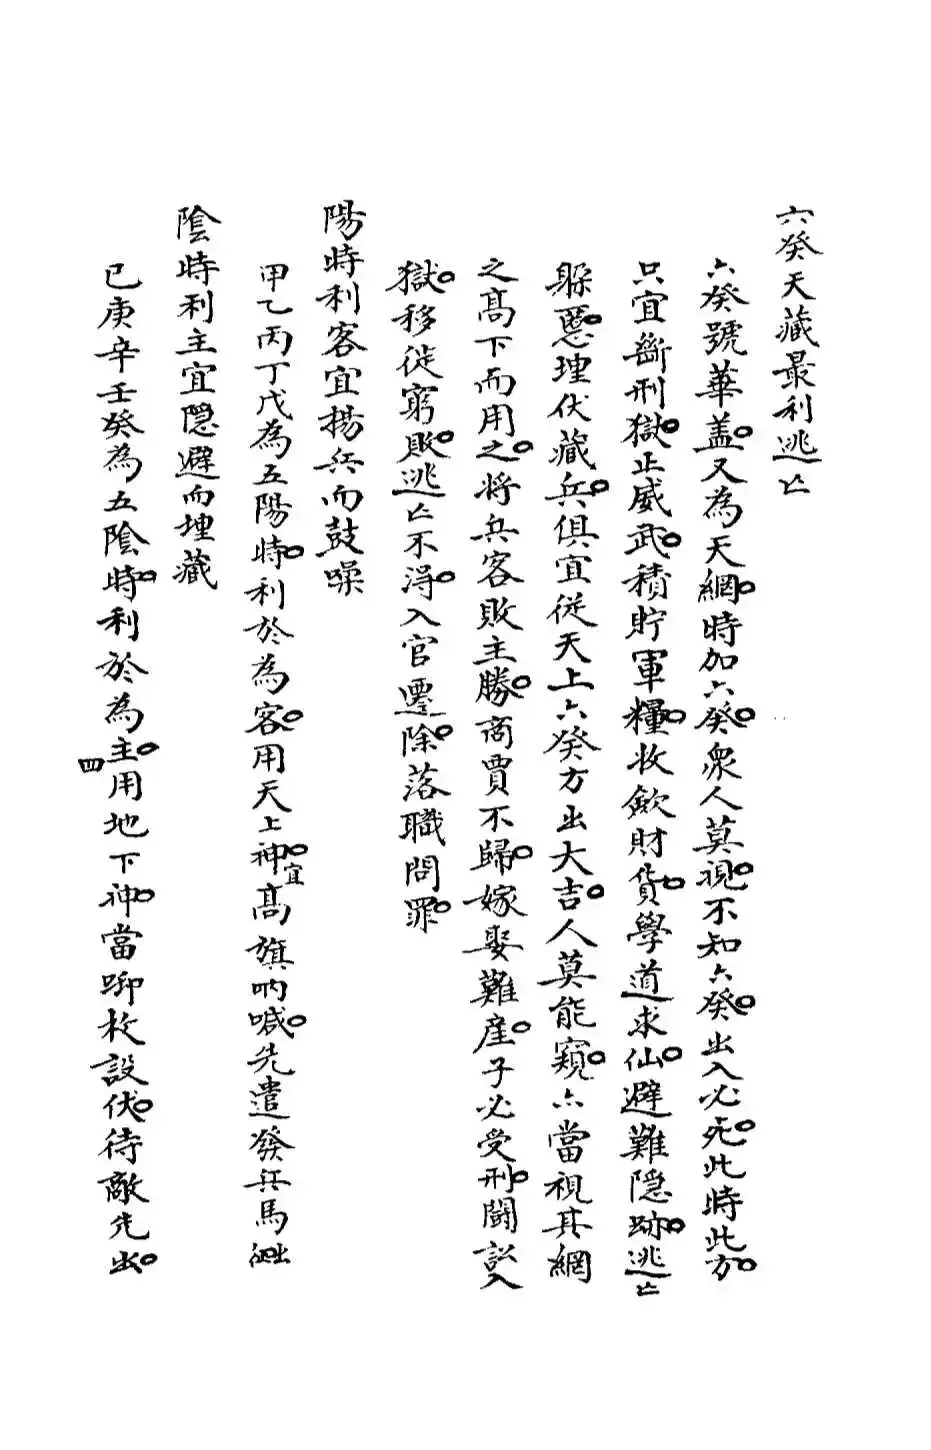 六癸天藏最利逃亡
六癸號華盖。又為天網。時加六癸。衆人莫視。不知六癸。出入必死。此時此方。
只宜斷刑獄。止威武。積貯軍糧。收歛財貨。學道求仙。避難隠跡。逃亡
躲慝。埋伏藏兵。俱宜從天上六癸方出大吉。人莫能窺。亦當視其網
之高下而用之。将兵客敗主勝。商賈不歸。嫁娶難産。子必受刑。闘訟入
獄。移徙窮敗。逃亡不得。入官遷除。落職問罪。
陽時利客宜揚兵而鼓噪
甲乙丙丁戊為五陽時。利於為客。用天上神。宜高旗吶喊。先遣發兵馬
陰時利主宜隠避而埋藏
已庚辛壬癸為五陰時。利於為主。用地下神。當啣枚設伏。待敵先出。
四